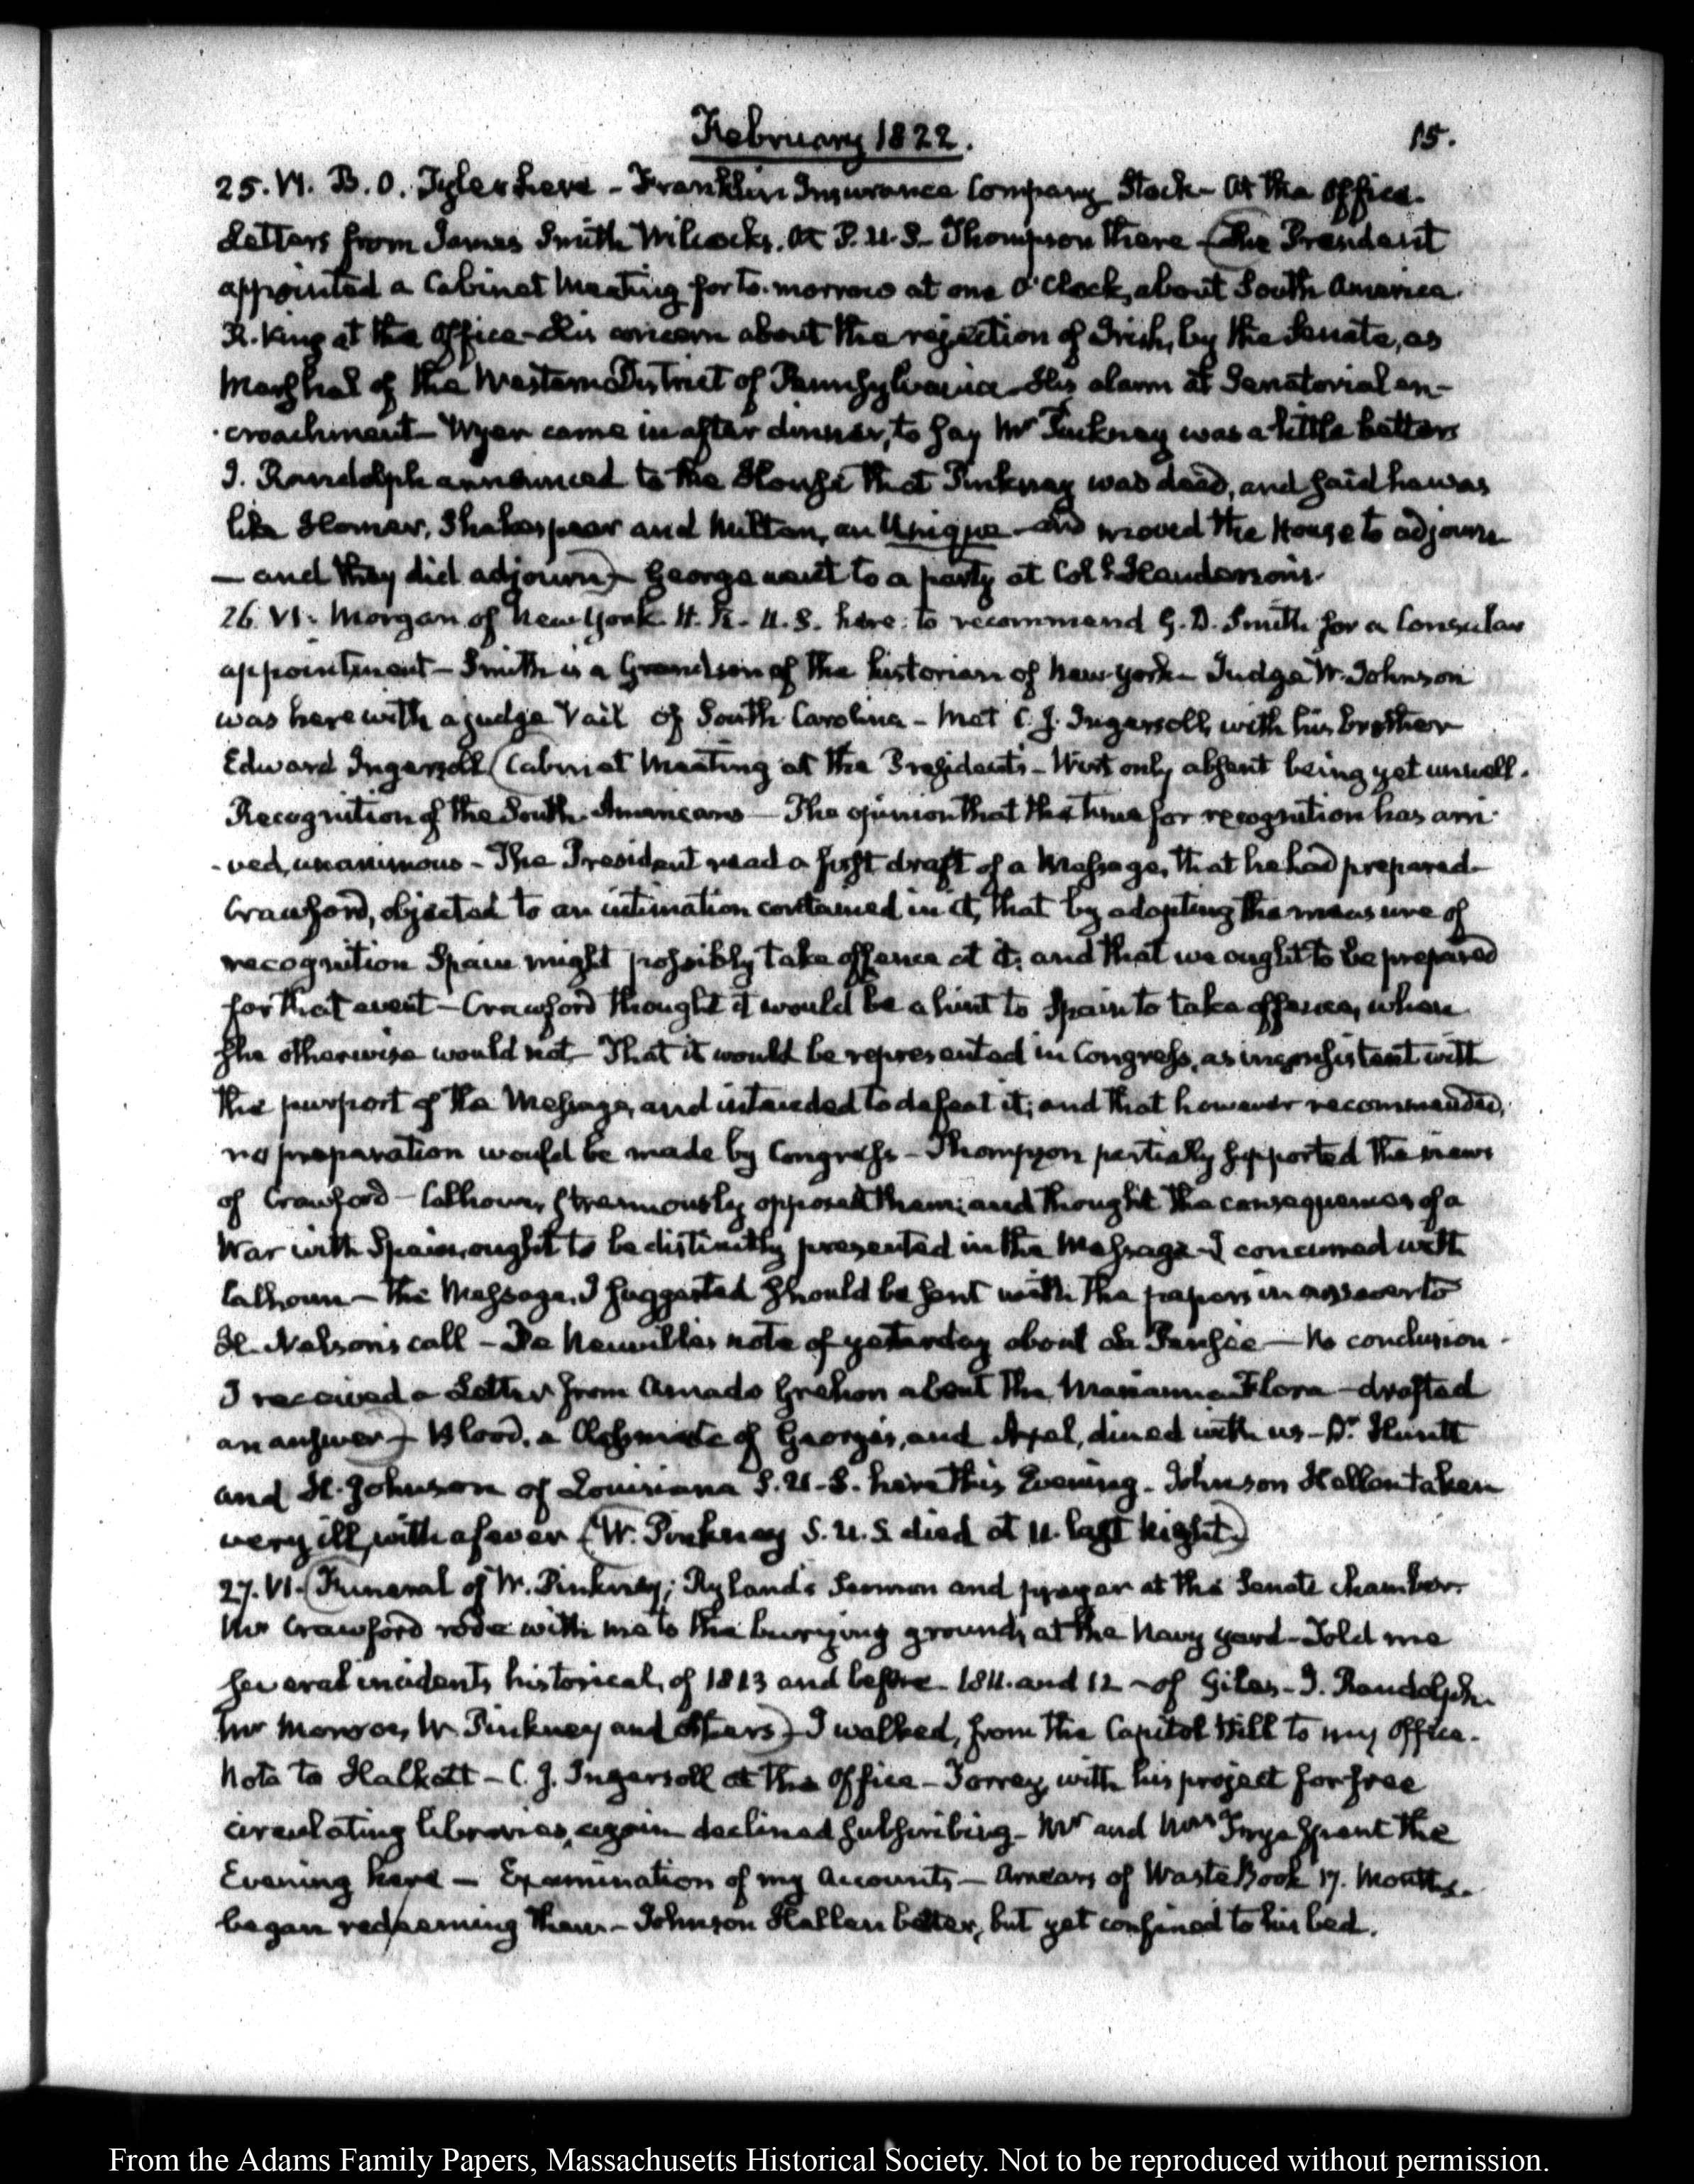 February 1822.
15.
25. VI. B. O. Tyler here - Franklin Insurance Company Stock - At the office.
Letters from James Smith Wilcocks. At P. U. S. Thompson there - (The President
appointed a Cabinet Meeting for to-morrow at one O'Clock, about South America.
R. King at the Office - His concern about the rejection of Irish, by the Senate, as
Marshal of the Western District of Pennsylvania - His alarm at Senatorial en-
-croachment - Wyer came in after dinner, to say Mr Pinkney was a little better
J. Randolph announced to the House that Pinkney was dead, and said he was
like Homer, Shakespear and Milton, an Unique - and moved the House to adjourn
- and they did adjourn) - George went to a party at Col.l Henderson's.
26. VI. Morgan of New York H. R. U. S. here: to recommend G. D. Smith for a Consular
appointment - Smith is a Grandson of the historian of New-York - Judge W. Johnson
was here with a judge Vail of South Carolina - Met C. J. Ingersoll, with his brother
Edward Ingersoll (Cabinet Meeting at the President's - Wirt only absent being yet unwell.
Recognition of the South-Americans - The opinion that the time for recognition has arri-
-ved, unanimous - The President read a first draft of a Message, that he had prepared -
Crawford, objected to an intimation contained in it, that by adopting the measure of
recognition Spain might possibly take offence at it; and that we ought to be prepared
for that event - Crawford thought it would be a hint to Spain to take offence, when
she otherwise would not - That it would be represented in Congress, as inconsistent with
the purport of the Message, and intended to defeat it; and that however recommended,
no preparation would be made by Congress - Thompson partially supported the views
of Crawford - Calhoun, strenuously opposed them; and thought the consequences of a
War with Spain, ought to be distinctly presented in the Message - I concurred with
Calhoun - The Message, I suggested should be sent with the papers in answer to
H. Nelson's call - De Neuville's note of yesterday about La Pensée - No conclusion -
I received a Letter from Amado Grehon about the Marianna Flora - drafted
an answer) - Blood, a Classmate of George's, and Apel, dined with us - Dr. Huntt
and H. Johnson of Louisiana S. U. S. here this Evening - Johnson Hellen taken
very ill, with a fever (W. Pinkney S. U. S. died at 11. last Night.)
27. VI. (Funeral of W. Pinkney; Ryland's Sermon and prayer at the Senate chamber.
Mr Crawford rode with me to the burying ground, at the Navy yard - Told me
several incidents historical, of 1813 and before 1811. and 12 - of Giles - J. Randolph
Mr Monroe, W. Pinkney and others) - I walked, from the Capitol Hill to my Office.
Note to Halkett - C. J. Ingersoll at the Office - Torrey, with his project for free
circulating libraries, again declined subscribing - Mr and Mrs Frye spent the
Evening here - Examination of my Accounts - Arrears of Waste Book 17. Months.
began redeeming them - Johnson Hellen better, but yet confined to his bed.
From the Adams Family Papers, Massachusetts Historical Society. Not to be reproduced without permission.